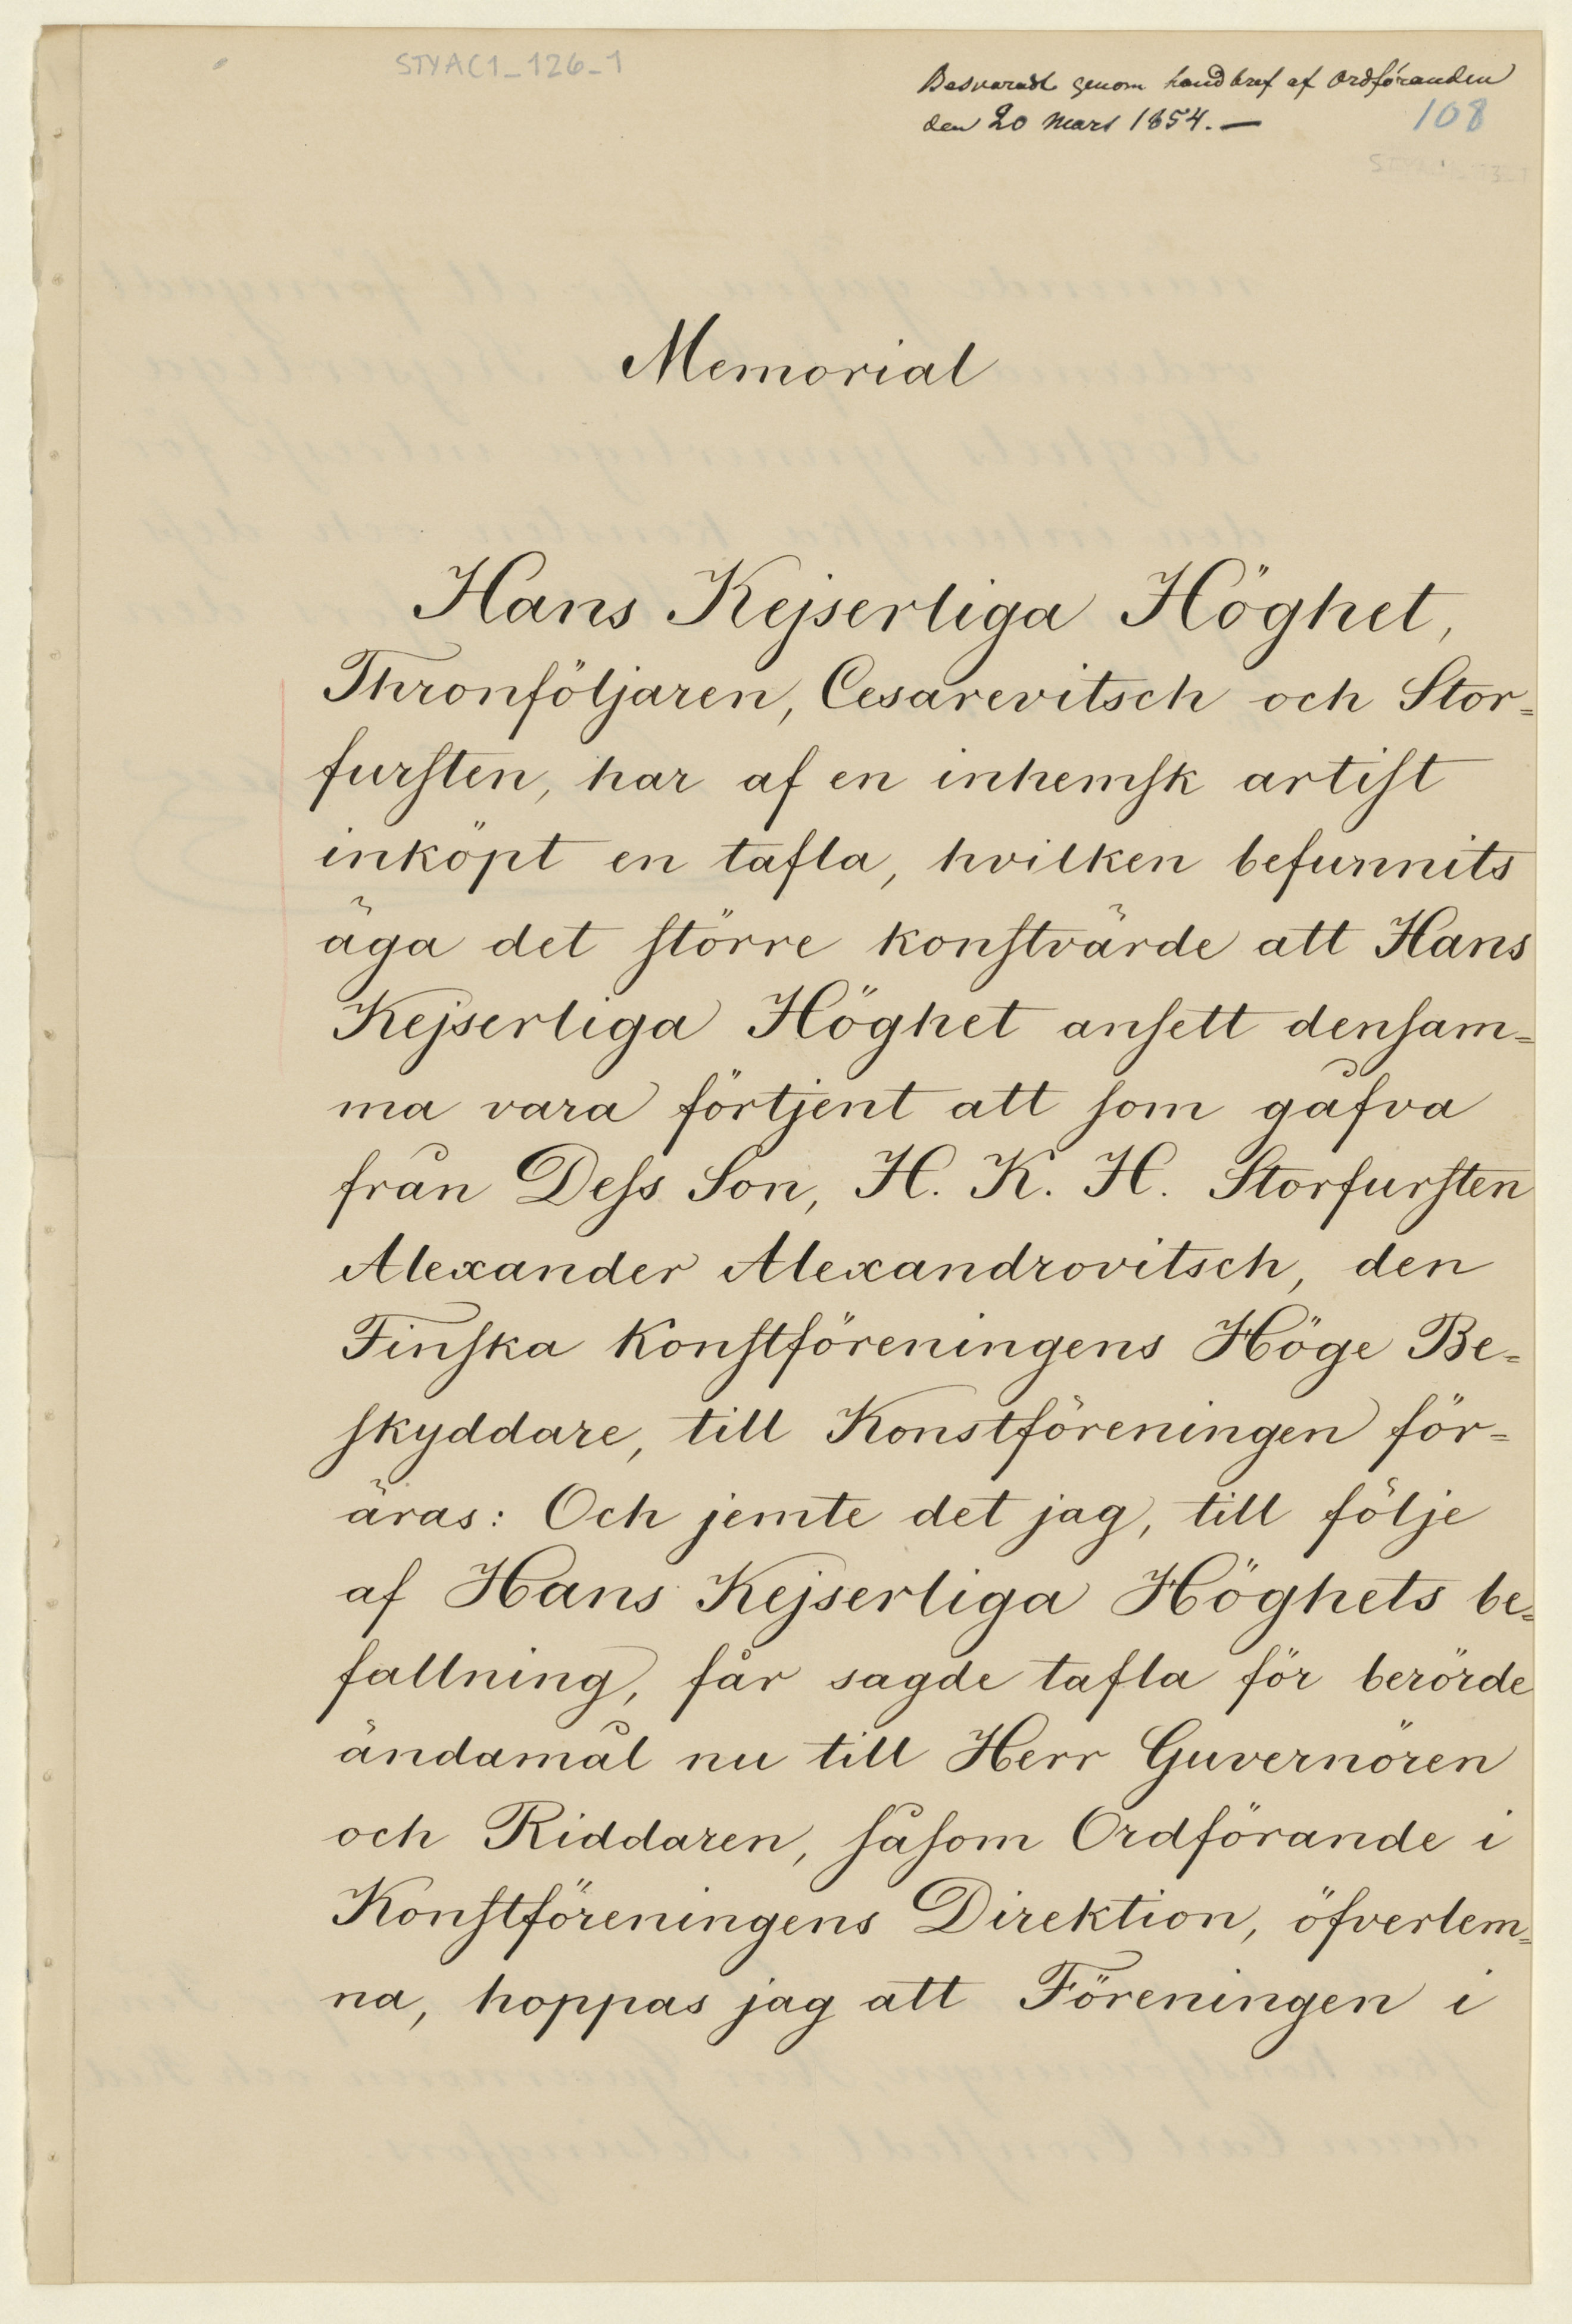 STYAC1_126_1
Besvaradt genom handbref af Ordföranden
den 20 Mars 1854. —
108
Memorial
Hans Kejserliga Höghet,
Thronföljaren, Cesarevitsch och Stor=
fursten, har af en inhemsk artist
inköpt en tafla, hvilken befunnits
äga det större konstvärde att Hans
Kejserliga Höghet ansett densam=
ma vara förtjent att som gåfva
från Dess Son, H. K. H. Storfursten
Alexander Alexandrovitsch, den
Finska Konstföreningens Höge Be=
skyddare, till Konstföreningen för=
äras: Och jemte det jag, till följe
af Hans Kejserliga Höghets be=
fallning, får sagde tafla för berörde
ändamål nu till Herr Guvernören
och Riddaren, såsom Ordförande i
Konstföreningens Direktion, öfverlem=
na, hoppas jag att Föreningen i